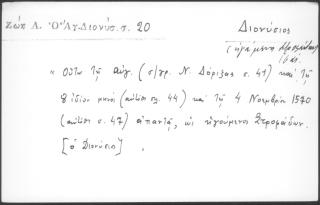 Ζώη Λ. Ὁ Ἅγ. Διονύσ. σ. 20
Διονύσιος
ἡγούμενος Στροφάδων
16 αι.
« Οὕτω τῇ αὐγ. (σ/γρ. Ν. Δόριζας σ. 41) καὶ τῇ
8 ἰδίου μηνὸς (αὐτόθι σελ. 44) καὶ τῇ 4 Νοεμβρίου 1570
(αὐτόθι σ. 47) ἀπαντᾷ, ὡς ἡγούμενος Στροφάδων.
[ὁ Διονύσιος] .